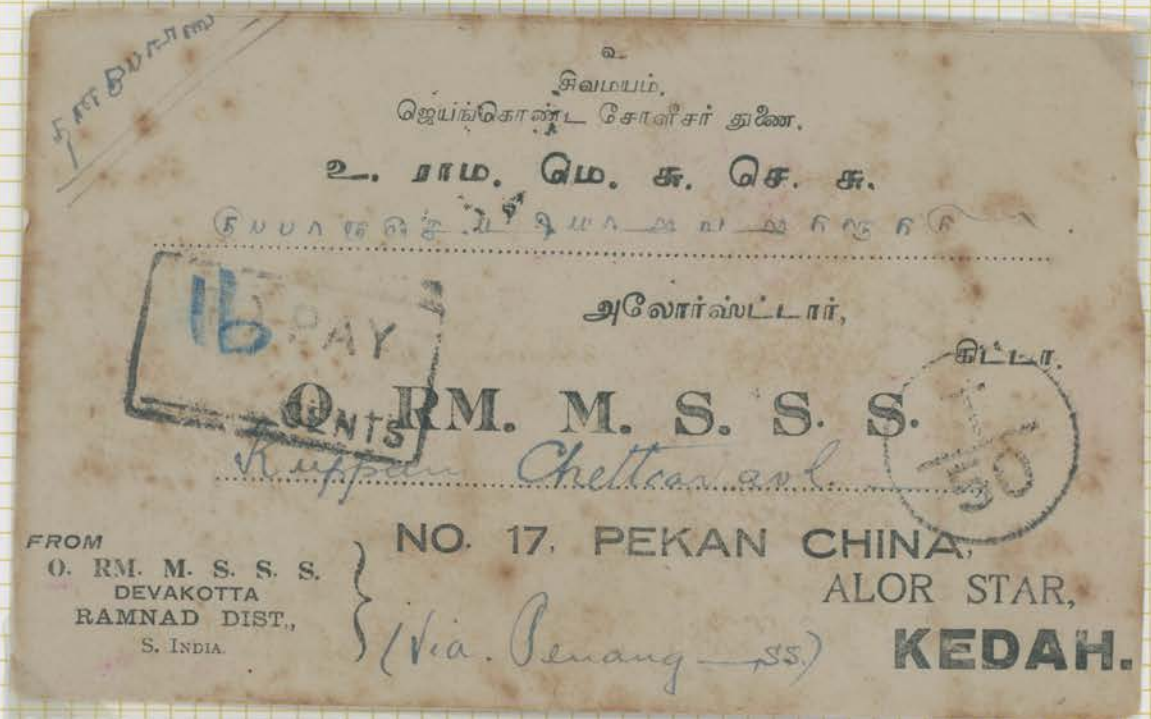 உ
சிவமயம்.
ஜெயங்கொண்ட சோளீசர் துணை.
உ. ராம. மெ. சு. செ. சு.
அலோர்ஸ்ட்டார்,
கிட்டா.
16
PAY
CENTS
T
50
O. RM. M. S. S. S.
Chettiar avl.
NO. 17, PEKAN CHINA,
ALOR STAR,
KEDAH.
(Via. Penang — SS.)
FROM
O. RM. M. S. S. S.
DEVAKOTTA
RAMNAD DIST.,
S. INDIA.